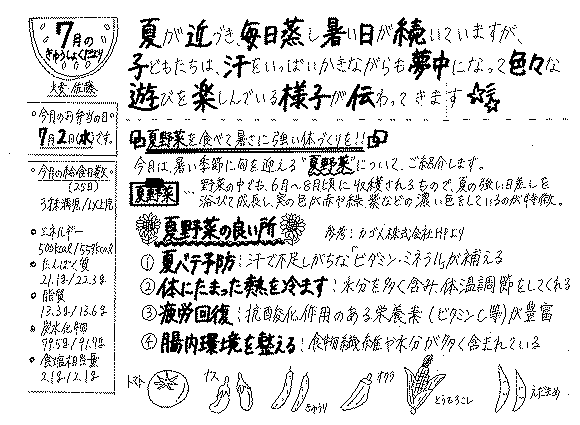 7月の
きゅうしょくだより
夏が近づき、毎日蒸し暑い日が続いていますが、
子どもたちは、汗をいっぱいかきながらも夢中になって色々な
遊びを楽しんでいる様子が伝わってきます
佐藤
今月のお弁当の日
7月2日(水)です。
夏野菜を食べて暑さに強い体づくりを!!
今月は、暑い季節に旬を迎える"夏野菜"について、ご紹介します。
夏野菜…野菜の中でも、6月〜8月頃に収穫されるもので、夏の強い日差しを
浴びて成長し、実の色が赤や緑、紫などの濃い色をしているのが特徴。
今月の給食日数
(25日)
3歳未満児/以上児
エネルギー
500kcal/559kcal
たんぱく質
21.1g/22.3g
脂質
13.3g/13.6g
炭水化物
79.5g/91.9g
食塩相当量
2.1g/2.1g
夏野菜の良い所
参考:カゴメ株式会社HPより
①夏バテ予防:汗で不足しがちな「ビタミン・ミネラル」が補える
②体にたまった熱を冷ます:水分を多く含み、体温調節をしてくれる
③疲労回復:抗酸化作用のある栄養素(ビタミンC等)が豊富
④腸内環境を整える:食物繊維や水分が多く含まれている
トマト
ナス
きゅうり
オクラ
とうもろこし
えだまめ